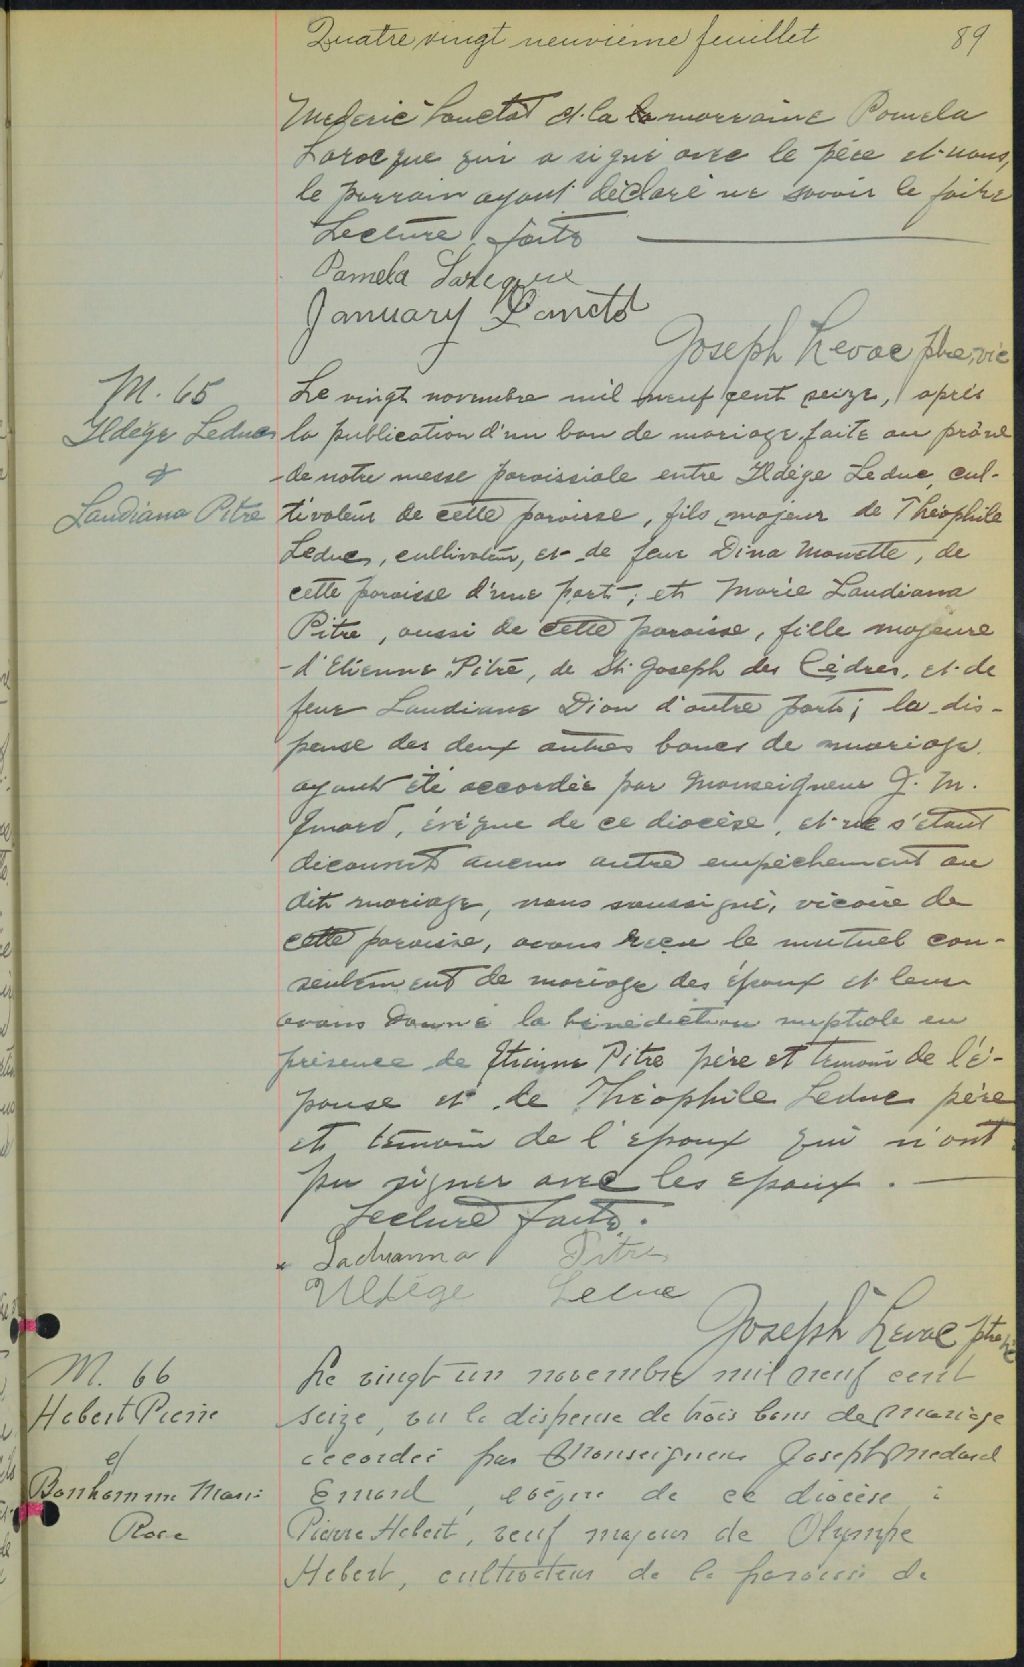 Quatre vingt neuvième feuillet 89
Mederic Lanctot et la la marraine Pomela
Larocque qui a signé avec le père et nous,
le parrain ayant déclaré ne savoir le faire
Lecture faite
Pamela Larocque
January Lanctot
Joseph Levac ptre, vic
M. 65
Ildège Leduc
&
Laudiana Pitre
Le vingt novembre mil neuf cent seize, après
la publication d'un ban de mariage faite au prône
de notre messe paroissiale entre Ildège Leduc, cul-
tivateur de cette paroisse, fils majeur de Théophile
Leduc, cultivateur, et de feue Dina Monette, de
cette paroisse d'une part; et Marie Laudiana
Pitre, aussi de cette paroisse, fille majeure
d'Etienne Pitre, de St Joseph des Cèdres, et de
feue Laudiane Dion d'autre part; la dis-
pense des deux autres bancs de mariage
ayant été accordée par Monseigneur J. M.
Emard, évêque de ce diocèse, et ne s'étant
découvert aucun autre empêchement au
dit mariage, nous soussigné, vicaire de
cette paroisse, avons reçu le mutuel con-
sentement de mariage des époux et leur
avons donné la bénédiction nuptiale en
présence de Etienne Pitre père et témoin de l'é-
pouse et de Théophile Leduc père
et témoin de l'epoux qui n'ont
pu signer avec les epoux.
Lecture faite.
Ladianna Pitre
Ildége Leduc
Joseph Levac ptre vic
M. 66
Hebert Pierre
et
Bonhomme Marie
Rose
Le vingt un novembre mil neuf cent
seize, vu la dispense de trois bans de mariage
accordée par Monseigneur Joseph Medard
Emard, evêque de ce diocèse:
Pierre Hebert, veuf majeur de Olympe
Hebert, cultivateur de la paroisse de